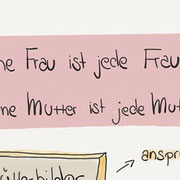 ne Frau ist jede Frau
ne Mutter ist jede Mut
anspr